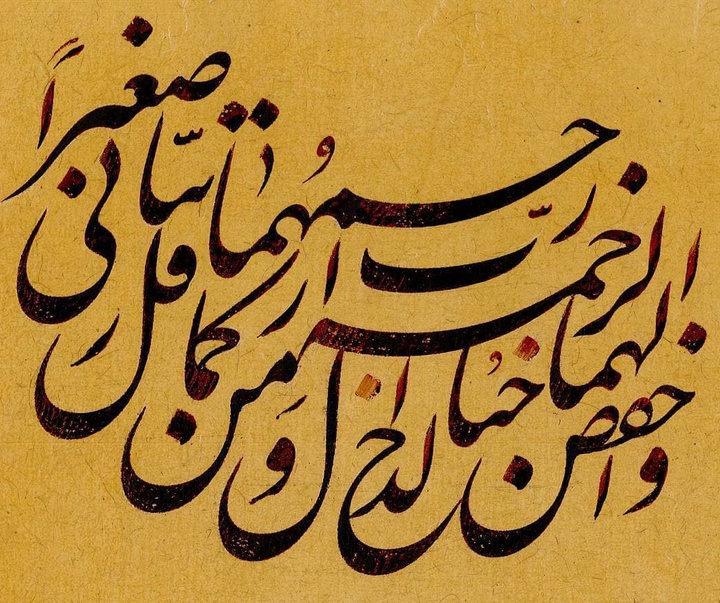 واخفض لهما جناح الذل من الرحمة وقل رب ارحمهما كما ربياني صغيراً